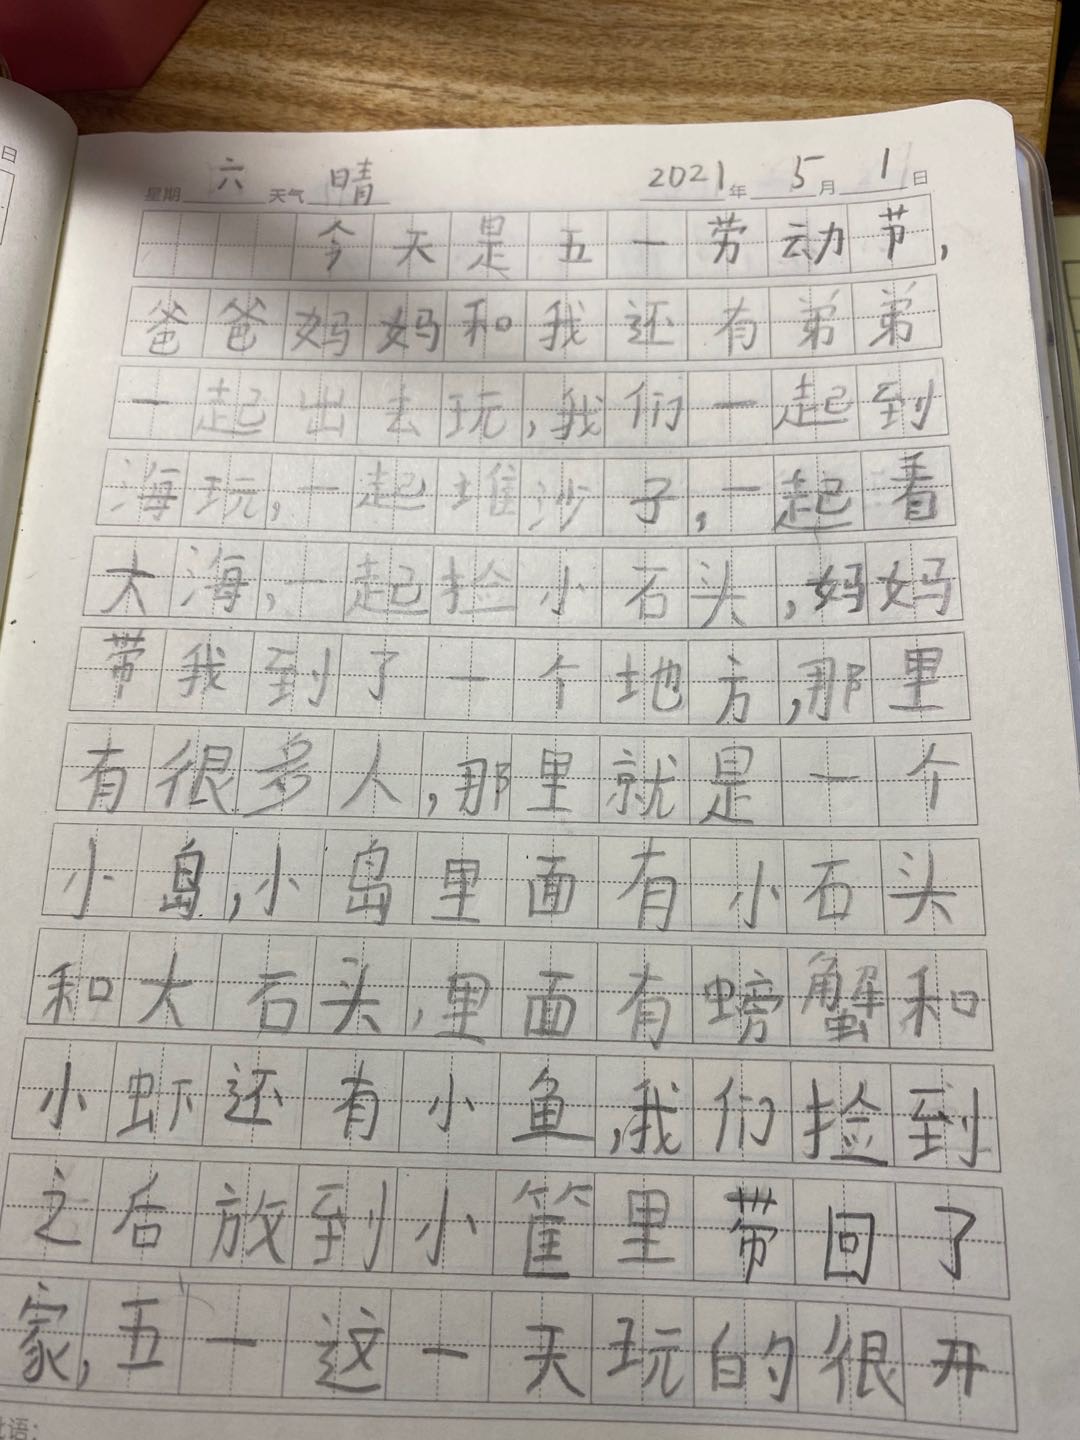 日
星期 六 天气 晴 2021年 5月 1日
今天是五一劳动节,
爸爸妈妈和我还有弟弟
一起出去玩,我们一起到
海玩,一起堆沙子,一起看
大海,一起捡小石头,妈妈
带我到了一个地方,那里
有很多人,那里就是一个
小岛,小岛里面有小石头
和大石头,里面有螃蟹和
小虾还有小鱼,我们捡到
之后放到小筐里带回了
家,五一这一天玩的很开
批语: